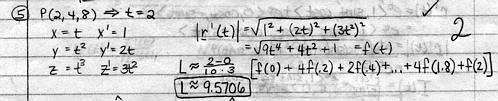 ⑤ P(2,4,8) ⇒ t=2
x = t x' = 1
y = t² y' = 2t
z = t³ z' = 3t²
|r'(t)| = √(1² + (2t)² + (3t²)²)
= √(9t⁴ + 4t² + 1) = f(t)
L ≈ (2-0)/(10·3) [f(0) + 4f(.2) + 2f(.4) + ... + 4f(1.8) + f(2)]
L ≈ 9.5706
✓
2